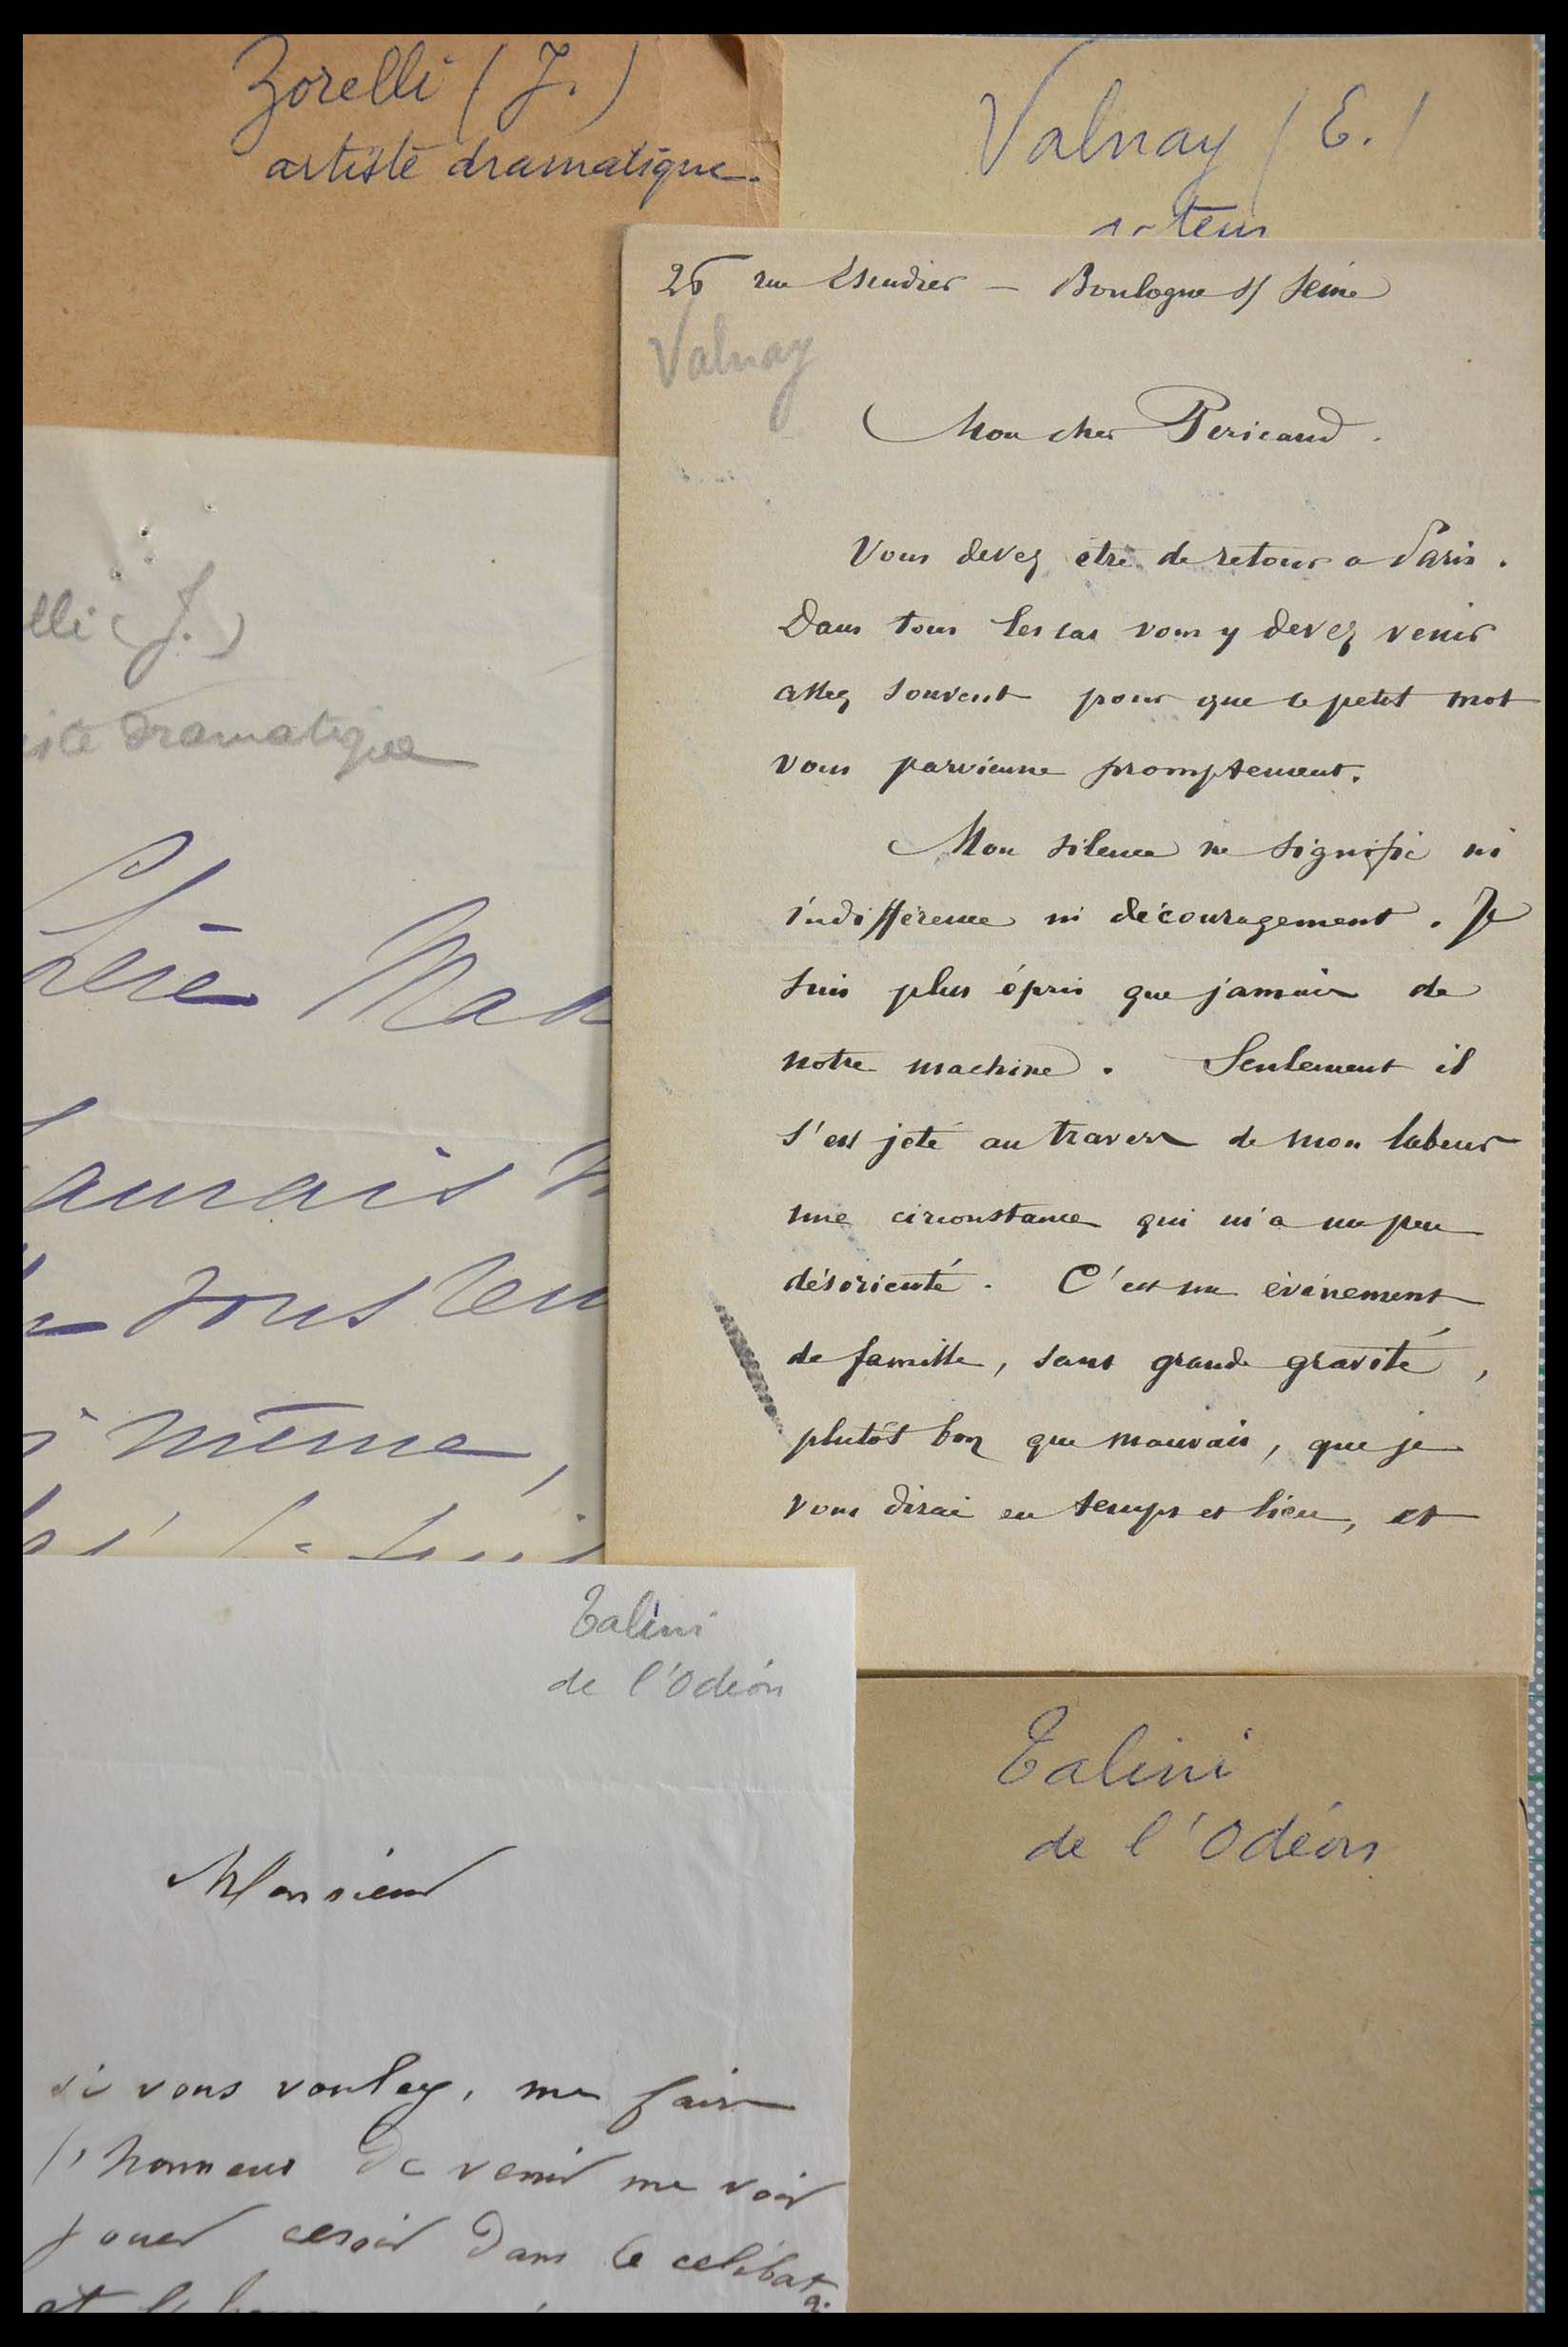 Zorelli (J.)
artiste dramatique.
Valnay (E.)
26 rue Escudier — Boulogne s/ Seine
Valnay
Mon cher Pericaud.
Vous devez être de retour a Paris.
Dans tous les cas vous y devez venir
assez souvent pour que ce petit mot
vous parvienne promptement.
Mon silence ne signifie ni
indifférence ni découragement. Je
suis plus épris que jamais de
notre machine. Seulement il
s'est jeté au travers de mon labeur
une circonstance qui m'a un peu
désorienté. C'est un évènement
de famille, sans grande gravité,
plutôt bon que mauvais, que je
vous dirai en temps et lieu, et
elli (J.)
iste dramatique
hère Mad
aurais
même,
Talini
de l'Odéon
Monsieur
si vous voulez, me faire
l'honneur de venir me voir
jouer cesoir dans le celibat
et
Talini
de l'Odéon